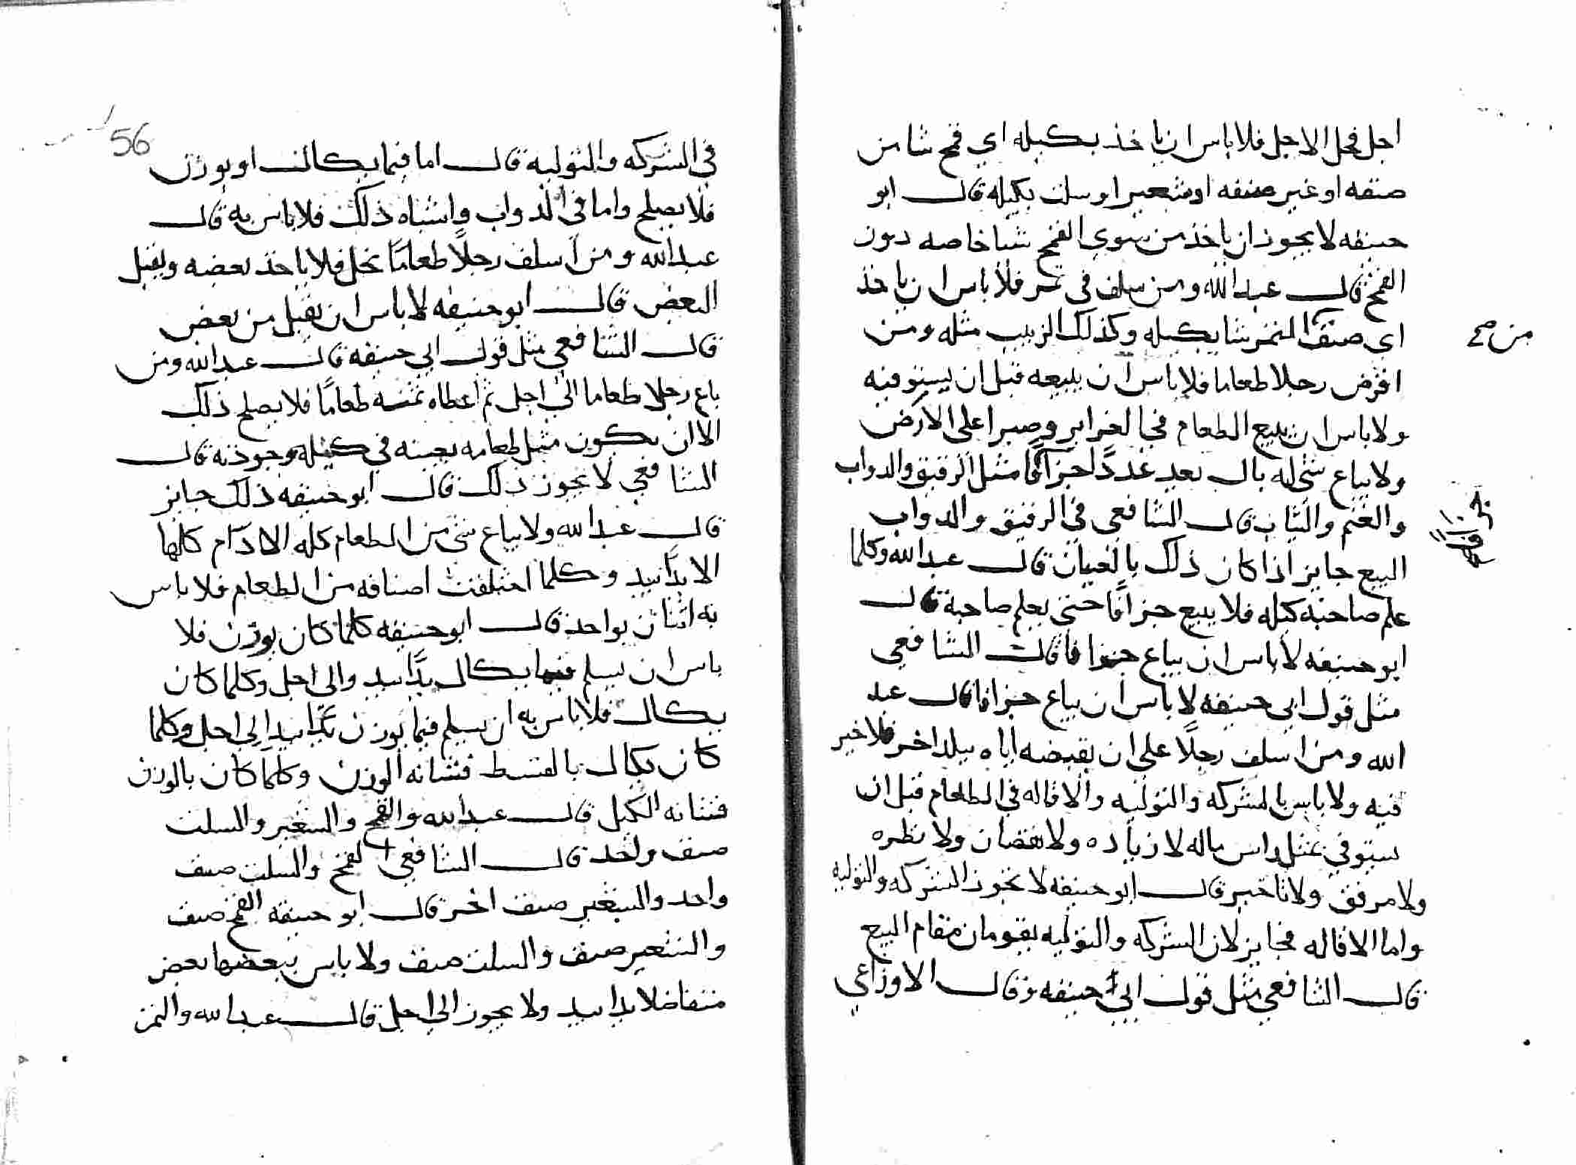 اجل فحل الاجل فلا باس ان ياخذ بكيله اي قمح شا من
صنفه او غير صنفه او شعير او سلت بكيله قال ابو
حنيفه لا يجوز ان ياخذ من سوي القمح شيا خاصه دون
القمح قال عبد الله ومن سلف في تمر فلا باس ان ياخذ
اي صنف من التمر شا بكيله وكذلك الزبيب مثله ومن
من صح
اقرض رجلا طعاما فلا باس ان يبيعه قبل ان يستوفيه
ولا باس ان يبيع الطعام في الغراير وصبرا على الارض
ولا يباع شي له بال بعد عددا جزافا مثل الرقيق والدواب
والغنم والثياب قال الشافعي في الرقيق والدواب
البيع جايز اذا كان ذلك بالعيان قال عبد الله وكلما
علم صاحبه كيله فلا يبيع جزافا حتى يعلم صاحبه قال
ابو حنيفه لا باس ان يباع جزافا قال الشافعي
مثل قول ابي حنيفه لا باس ان يباع جزافا قال عبد
الله ومن اسلف رجلا على ان يقبضه اياه ببلد اخر فلا خير
فيه ولا باس بالشركه والتوليه والاقاله في الطعام قبل ان
يستوفي بمثل راس ماله لا زياده ولا نقصان ولا نظره
ولا مرفق ولا تاخير قال ابو حنيفه لا تجوز الشركه والتوليه
واما الاقاله فجايز لان الشركه والتوليه يقومان مقام البيع
قال الشافعي مثل قول ابي حنيفه وقال الاوزاعي
56
في الشركه والتوليه قال اما فيما يكال او يوزن
فلا يصلح واما في الدواب واشباه ذلك فلا باس به قال
عبد الله ومن اسلف رجلا طعاما فحل فلا ياخذ بعضه ويقيل
البعض قال ابو حنيفه لا باس ان يقيل من بعض
قال الشافعي مثل قول ابي حنيفه قال عبد الله ومن
باع رجلا طعاما الى اجل ثم اعطاه بثمنه طعاما فلا يصلح ذلك
الا ان يكون مثل طعامه بعينه في كيله وجودته قال
الشافعي لا يجوز ذلك قال ابو حنيفه ذلك جايز
قال عبد الله ولا يباع شي من الطعام كله الادام كلها
الا يدا بيد وكلما اختلفت اصنافه من الطعام فلا باس
به اثنان بواحد قال ابو حنيفه كلما كان يوزن فلا
باس ان يسلم فيما يكال يدا بيد والى اجل وكلما كان
يكال فلا باس به ان يسلم فيما يوزن يدا بيد الى اجل وكلما
كان يكال بالقسط فشانه الوزن وكلما كان بالوزن
فشانه الكيل قال عبد الله والقمح والشعير والسلت
صنف واحد قال الشافعي القمح والسلت صنف
واحد والشعير صنف اخر قال ابو حنيفه القمح صنف
والشعير صنف والسلت صنف ولا باس ببعضها بعض
متفاضلا يدا بيد ولا يجوز الى اجل قال عبد الله والتمر